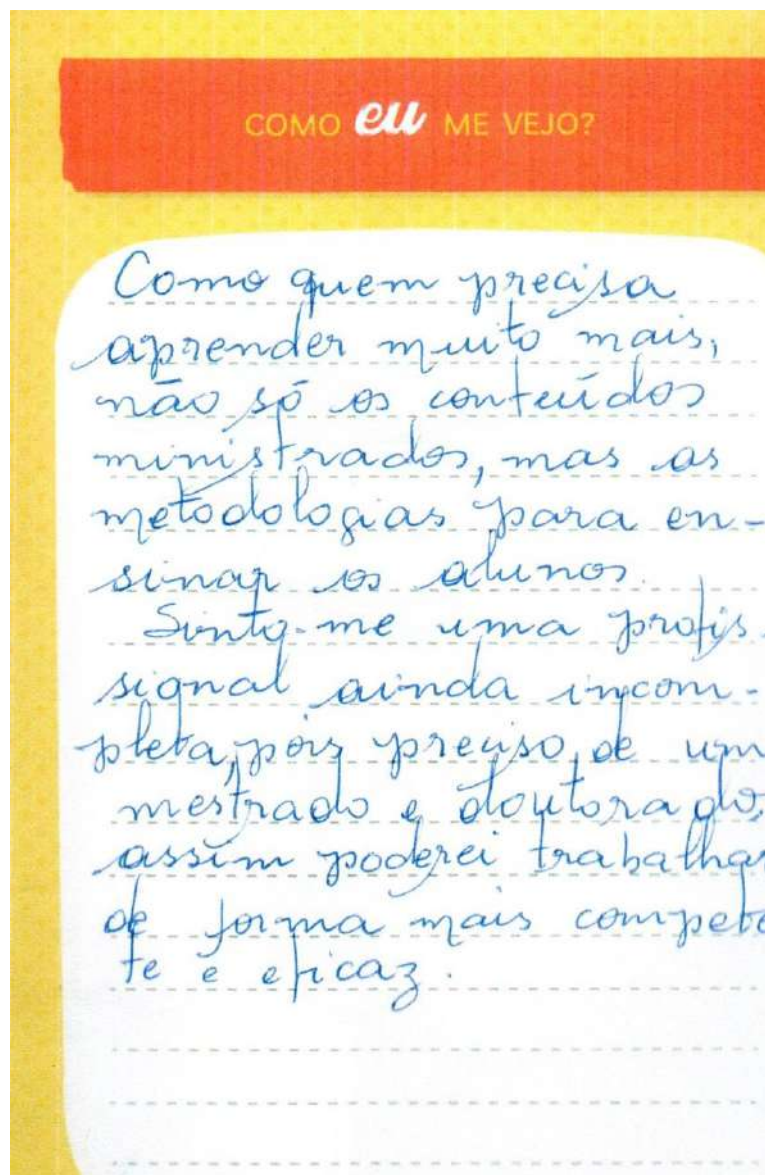 COMO eu ME VEJO?
Como quem precisa
aprender muito mais,
não só os conteúdos
ministrados, mas as
metodologias para en-
sinar os alunos.
Sinto-me uma profis-
sional ainda incom-
pleta, pois preciso de um
mestrado e doutorado,
assim poderei trabalhar
de forma mais compete
te e eficaz.